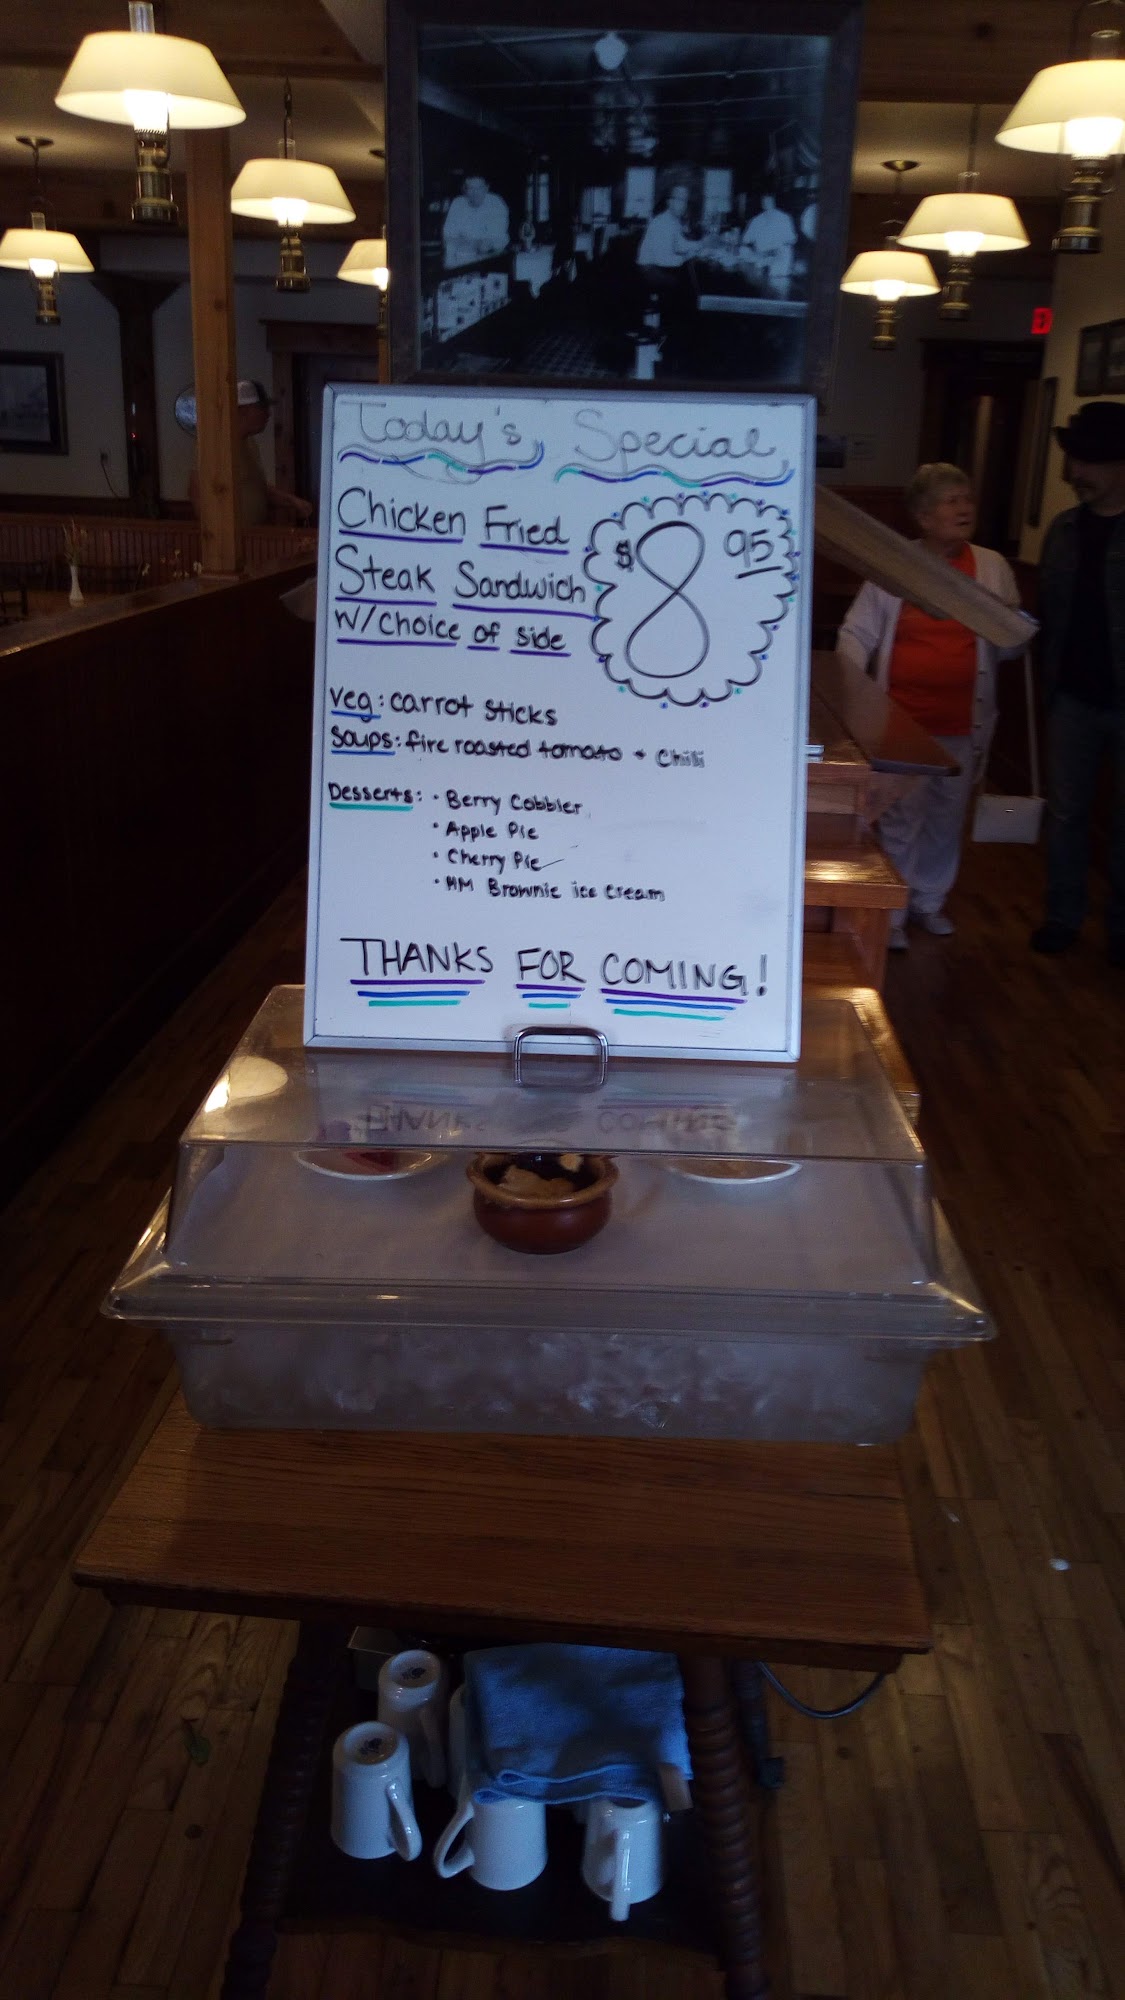 Today's Special
Chicken Fried
Steak Sandwich
w/choice of side
$8 95
Veg: carrot sticks
Soups: fire roasted tomato + Chili
Desserts: • Berry Cobbler
• Apple Pie
• Cherry Pie
• HM Brownie ice cream
THANKS FOR COMING!